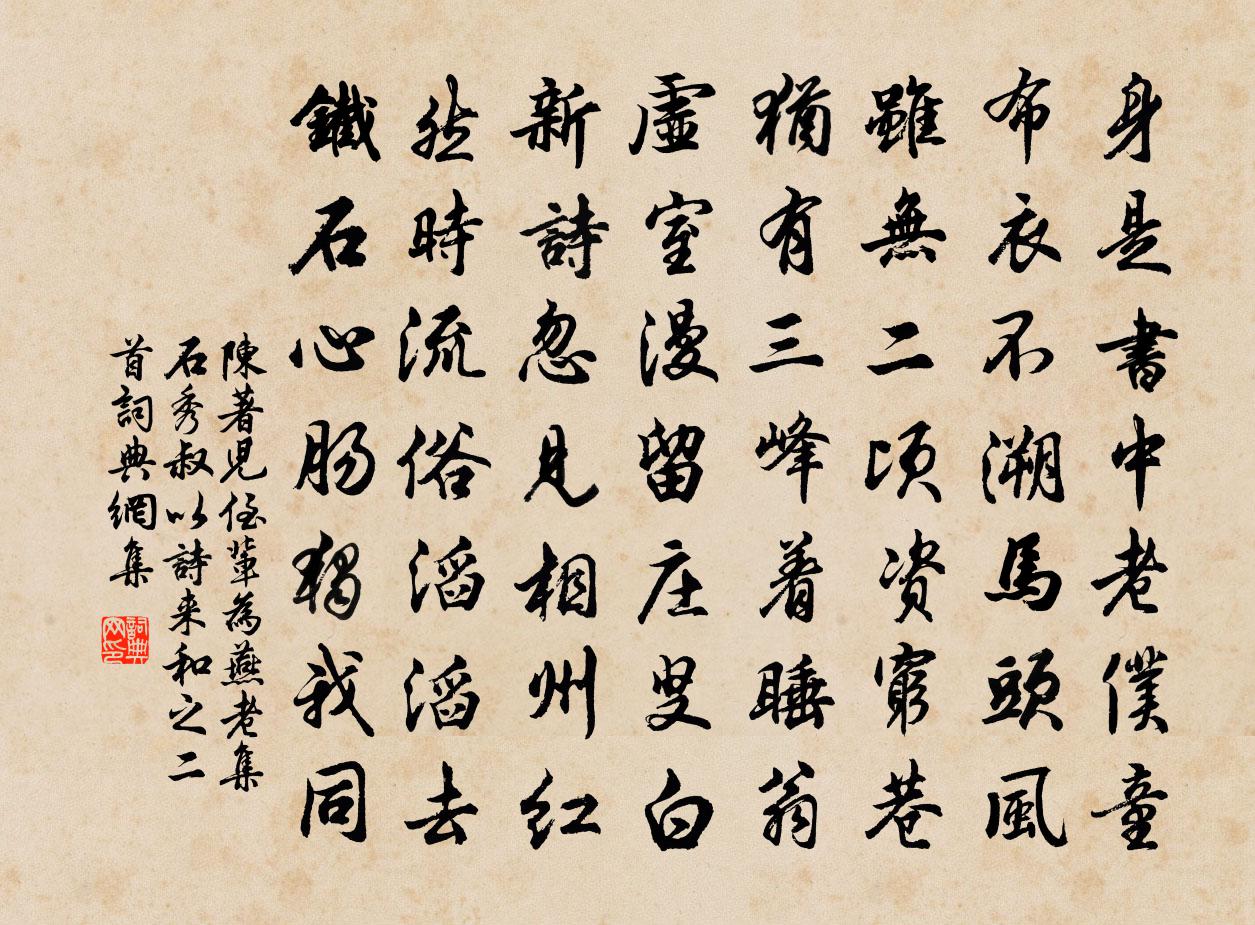 身是書中老僕童
布衣不溯馬頭風
雖無二頃資窮巷
猶有三峰着睡翁
虛室漫留庄叟白
新詩忽見相州紅
然時流俗滔滔去
鐵石心腸獨我同
陳著児侄輩為燕老集
石秀叔以詩来和之二
首詞典網集
詞典网印